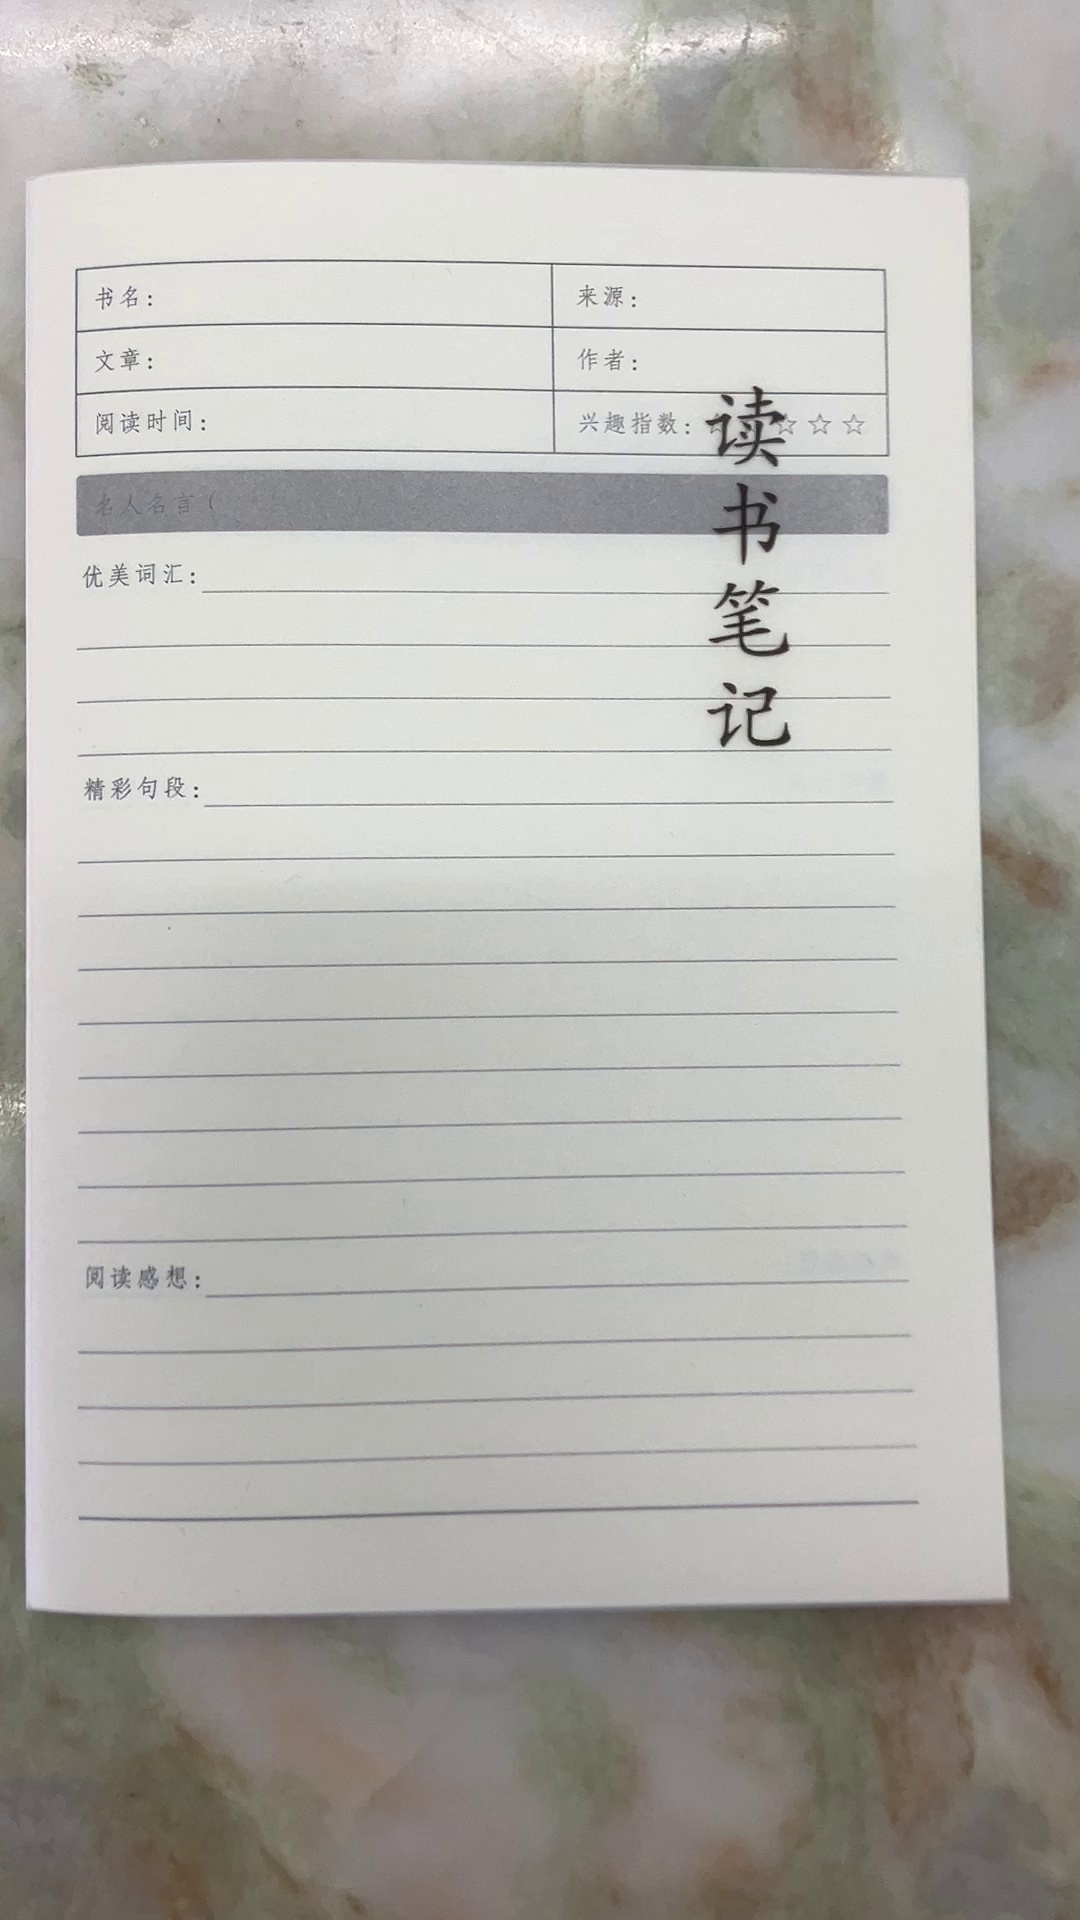 书名： 来源：
文章： 作者：
阅读时间： 兴趣指数：☆☆☆☆☆
名人名言（
优美词汇：
精彩句段：
阅读感想：
读
书
笔
记